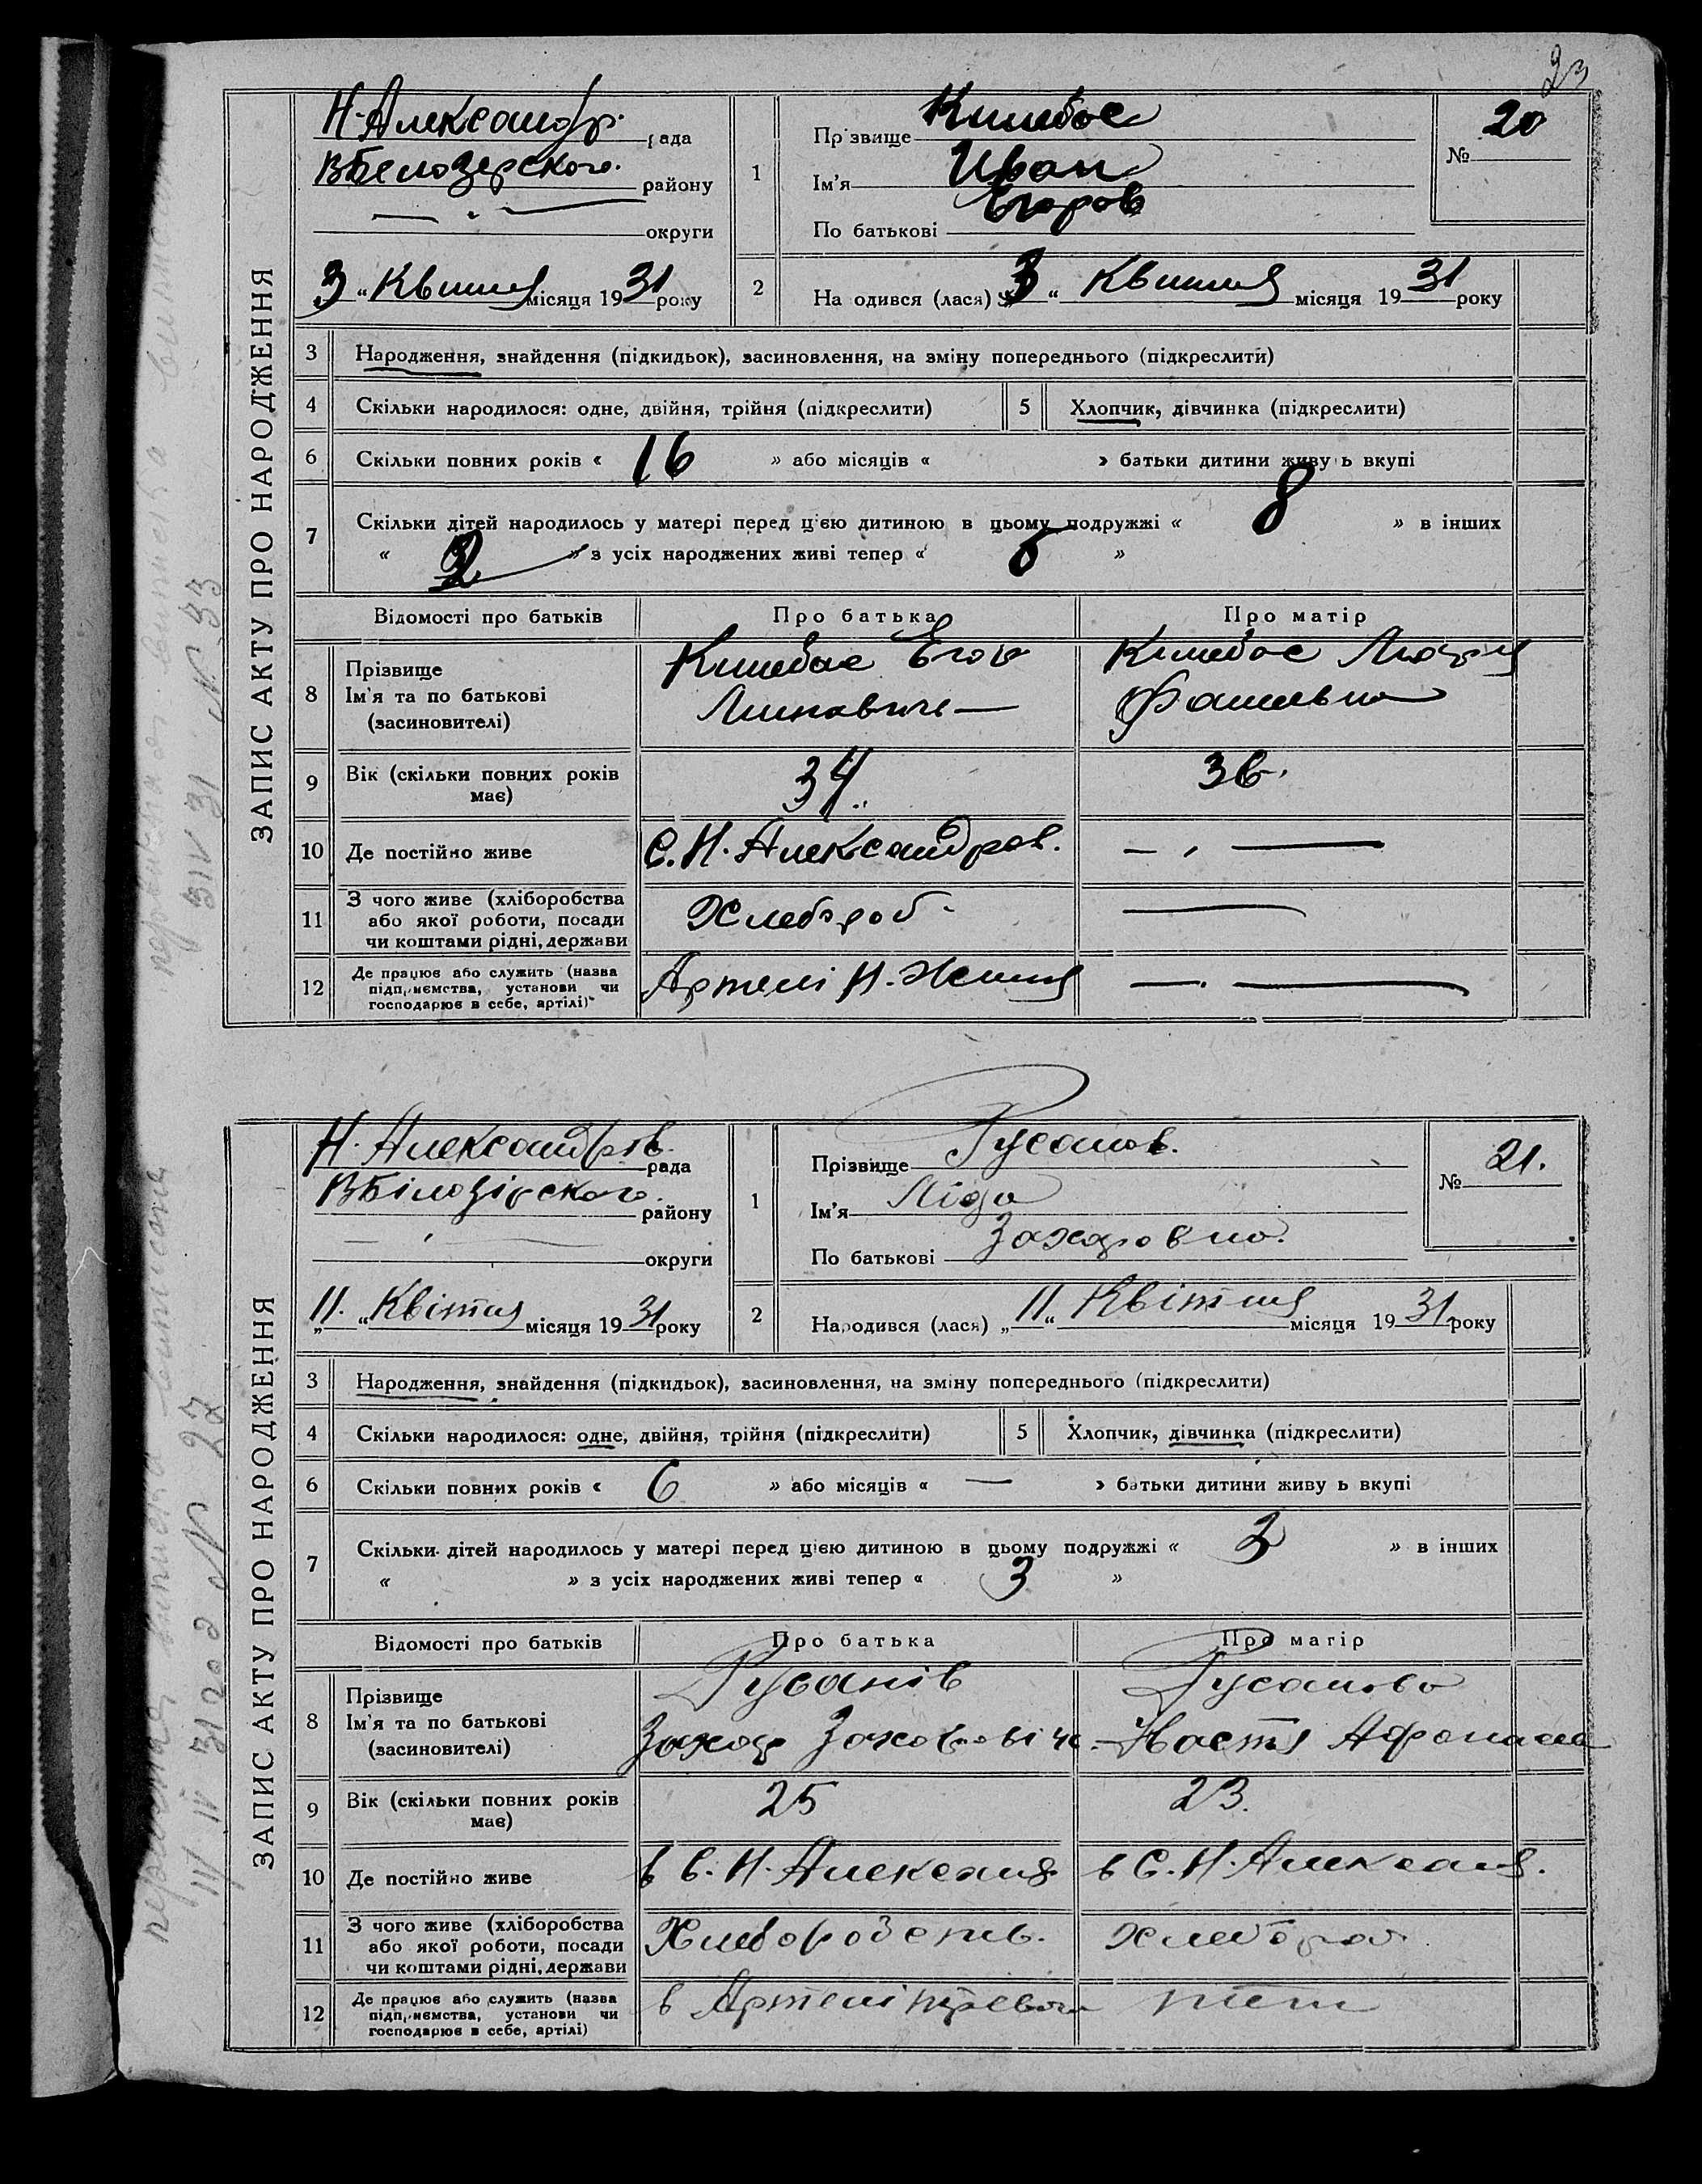 23
ЗАПИС АКТУ ПРО НАРОДЖЕННЯ
Н-Александр. рада
ВБелозерского. району
— " — округи
3 "Квитня місяця 1931 року
1
Прізвище
Ім'я Иван
По батькові Егоров
№ 20
2
На одився (лася) 3 " Квитня місяця 1931 року
3 Народження, знайдення (підкидьок), засиновлення, на зміну попереднього (підкреслити)
4 Скільки народилося: одне, двійня, трійня (підкреслити) 5 Хлопчик, дівчинка (підкреслити)
6 Скільки повних років « 16 » або місяців « » батьки дитини живу ь вкупі
7 Скільки дітей народилось у матері перед цією дитиною в цьому подружжі « 8 » в інших
« 2 » з усіх народжених живі тепер « »
Відомості про батьків Про батька Про матір
8 Прізвище
Ім'я та по батькові
(засиновителі)
Егор
9 Вік (скільки повних років має) 34. 36.
10 Де постійно живе С. Н. Александров. — " —
11 З чого живе (хліборобства або якої роботи, посади чи коштами рідні, держави Хлебороб - —
12 Де працює або служить (назва підприємства, установи чи господарює в себе, артілі) Артели Н. —. —
ЗАПИС АКТУ ПРО НАРОДЖЕННЯ
Н. Александров. рада
ВБілозірского. району
— " — округи
11. "Квітня місяця 1931 року
1
Прізвище Русанов.
Ім'я Ліда
По батькові Захаровна.
№ 21.
2
Народився (лася) „11" Квітния місяця 1931 року
3 Народження, знайдення (підкидьок), засиновлення, на зміну попереднього (підкреслити)
4 Скільки народилося: одне, двійня, трійня (підкреслити) 5 Хлопчик, дівчинка (підкреслити)
6 Скільки повних років « 6 » або місяців « — » батьки дитини живу ь вкупі
7 Скільки дітей народилось у матері перед цією дитиною в цьому подружжі « 3 » в інших
« » з усіх народжених живі тепер « 3 »
Відомості про батьків Про батька Про матір
8 Прізвище
Ім'я та по батькові
(засиновителі)
Русанів Русанова
Захар Захаровіч. Настя Афанасов
9 Вік (скільки повних років має) 25 23.
10 Де постійно живе в с. Н. Александ. в С. Н. Александ.
11 З чого живе (хліборобства або якої роботи, посади чи коштами рідні, держави Хлебороб Хлебороб
12 Де працює або служить (назва підприємства, установи чи господарює в себе, артілі) в Артелі